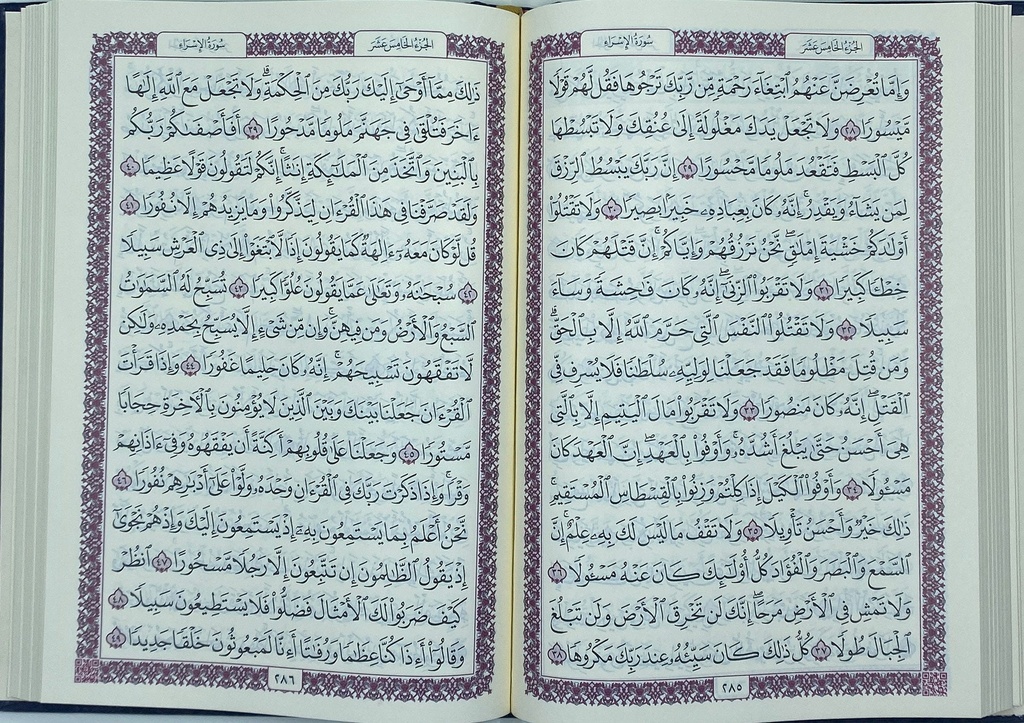 سُورَةُ الإِسْرَاء
الجُزْءُ الخَامِسَ عَشَر
وَإِمَّا تُعْرِضَنَّ عَنْهُمُ ٱبْتِغَآءَ رَحْمَةٍ مِّن رَّبِّكَ تَرْجُوهَا فَقُل لَّهُمْ قَوْلًا
مَّيْسُورًا ٢٨ وَلَا تَجْعَلْ يَدَكَ مَغْلُولَةً إِلَىٰ عُنُقِكَ وَلَا تَبْسُطْهَا
كُلَّ ٱلْبَسْطِ فَتَقْعُدَ مَلُومًا مَّحْسُورًا ٢٩ إِنَّ رَبَّكَ يَبْسُطُ ٱلرِّزْقَ
لِمَن يَشَآءُ وَيَقْدِرُ ۚ إِنَّهُۥ كَانَ بِعِبَادِهِۦ خَبِيرًۢا بَصِيرًا ٣٠ وَلَا تَقْتُلُوٓا۟
أَوْلَـٰدَكُمْ خَشْيَةَ إِمْلَـٰقٍ ۖ نَّحْنُ نَرْزُقُهُمْ وَإِيَّاكُمْ ۚ إِنَّ قَتْلَهُمْ كَانَ
خِطْـًٔا كَبِيرًا ٣١ وَلَا تَقْرَبُوا۟ ٱلزِّنَىٰٓ ۖ إِنَّهُۥ كَانَ فَـٰحِشَةً وَسَآءَ
سَبِيلًا ٣٢ وَلَا تَقْتُلُوا۟ ٱلنَّفْسَ ٱلَّتِى حَرَّمَ ٱللَّهُ إِلَّا بِٱلْحَقِّ ۗ
وَمَن قُتِلَ مَظْلُومًا فَقَدْ جَعَلْنَا لِوَلِيِّهِۦ سُلْطَـٰنًا فَلَا يُسْرِف فِّى
ٱلْقَتْلِ ۖ إِنَّهُۥ كَانَ مَنصُورًا ٣٣ وَلَا تَقْرَبُوا۟ مَالَ ٱلْيَتِيمِ إِلَّا بِٱلَّتِى
هِىَ أَحْسَنُ حَتَّىٰ يَبْلُغَ أَشُدَّهُۥ ۚ وَأَوْفُوا۟ بِٱلْعَهْدِ ۖ إِنَّ ٱلْعَهْدَ كَانَ
مَسْـُٔولًا ٣٤ وَأَوْفُوا۟ ٱلْكَيْلَ إِذَا كِلْتُمْ وَزِنُوا۟ بِٱلْقِسْطَاسِ ٱلْمُسْتَقِيمِ ۚ
ذَٰلِكَ خَيْرٌ وَأَحْسَنُ تَأْوِيلًا ٣٥ وَلَا تَقْفُ مَا لَيْسَ لَكَ بِهِۦ عِلْمٌ ۚ إِنَّ
ٱلسَّمْعَ وَٱلْبَصَرَ وَٱلْفُؤَادَ كُلُّ أُو۟لَـٰٓئِكَ كَانَ عَنْهُ مَسْـُٔولًا ٣٦
وَلَا تَمْشِ فِى ٱلْأَرْضِ مَرَحًا ۖ إِنَّكَ لَن تَخْرِقَ ٱلْأَرْضَ وَلَن تَبْلُغَ
ٱلْجِبَالَ طُولًا ٣٧ كُلُّ ذَٰلِكَ كَانَ سَيِّئُهُۥ عِندَ رَبِّكَ مَكْرُوهًا ٣٨
٢٨٥
سُورَةُ الإِسْرَاء
الجُزْءُ الخَامِسَ عَشَر
ذَٰلِكَ مِمَّآ أَوْحَىٰٓ إِلَيْكَ رَبُّكَ مِنَ ٱلْحِكْمَةِ ۗ وَلَا تَجْعَلْ مَعَ ٱللَّهِ إِلَـٰهًا
ءَاخَرَ فَتُلْقَىٰ فِى جَهَنَّمَ مَلُومًا مَّدْحُورًا ٣٩ أَفَأَصْفَىٰكُمْ رَبُّكُم
بِٱلْبَنِينَ وَٱتَّخَذَ مِنَ ٱلْمَلَـٰٓئِكَةِ إِنَـٰثًا ۚ إِنَّكُمْ لَتَقُولُونَ قَوْلًا عَظِيمًا ٤٠
وَلَقَدْ صَرَّفْنَا فِى هَـٰذَا ٱلْقُرْءَانِ لِيَذَّكَّرُوا۟ وَمَا يَزِيدُهُمْ إِلَّا نُفُورًا ٤١
قُل لَّوْ كَانَ مَعَهُۥٓ ءَالِهَةٌ كَمَا يَقُولُونَ إِذًا لَّٱبْتَغَوْا۟ إِلَىٰ ذِى ٱلْعَرْشِ سَبِيلًا
٤٢ سُبْحَـٰنَهُۥ وَتَعَـٰلَىٰ عَمَّا يَقُولُونَ عُلُوًّا كَبِيرًا ٤٣ تُسَبِّحُ لَهُ ٱلسَّمَـٰوَٰتُ
ٱلسَّبْعُ وَٱلْأَرْضُ وَمَن فِيهِنَّ ۚ وَإِن مِّن شَىْءٍ إِلَّا يُسَبِّحُ بِحَمْدِهِۦ وَلَـٰكِن
لَّا تَفْقَهُونَ تَسْبِيحَهُمْ ۗ إِنَّهُۥ كَانَ حَلِيمًا غَفُورًا ٤٤ وَإِذَا قَرَأْتَ
ٱلْقُرْءَانَ جَعَلْنَا بَيْنَكَ وَبَيْنَ ٱلَّذِينَ لَا يُؤْمِنُونَ بِٱلْـَٔاخِرَةِ حِجَابًا
مَّسْتُورًا ٤٥ وَجَعَلْنَا عَلَىٰ قُلُوبِهِمْ أَكِنَّةً أَن يَفْقَهُوهُ وَفِىٓ ءَاذَانِهِمْ
وَقْرًا ۚ وَإِذَا ذَكَرْتَ رَبَّكَ فِى ٱلْقُرْءَانِ وَحْدَهُۥ وَلَّوْا۟ عَلَىٰٓ أَدْبَـٰرِهِمْ نُفُورًا ٤٦
نَّحْنُ أَعْلَمُ بِمَا يَسْتَمِعُونَ بِهِۦٓ إِذْ يَسْتَمِعُونَ إِلَيْكَ وَإِذْ هُمْ نَجْوَىٰٓ
إِذْ يَقُولُ ٱلظَّـٰلِمُونَ إِن تَتَّبِعُونَ إِلَّا رَجُلًا مَّسْحُورًا ٤٧ ٱنظُرْ
كَيْفَ ضَرَبُوا۟ لَكَ ٱلْأَمْثَالَ فَضَلُّوا۟ فَلَا يَسْتَطِيعُونَ سَبِيلًا ٤٨
وَقَالُوٓا۟ أَءِذَا كُنَّا عِظَـٰمًا وَرُفَـٰتًا أَءِنَّا لَمَبْعُوثُونَ خَلْقًا جَدِيدًا ٤٩
٢٨٦